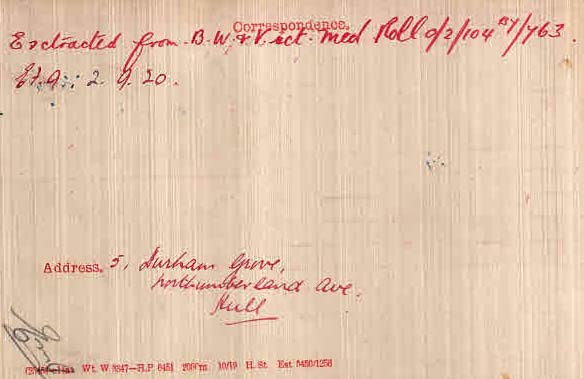 Correspondence.
Exctracted from B.W. & Vict. Med Roll O/2/104 BY/763.
2.9.20.
Address. 5, Durham Grove,
Northumberland Ave.
Hull
Wt. W 5347—H.P 6451 2000m. 10/19 H. St. Est 5450/1256